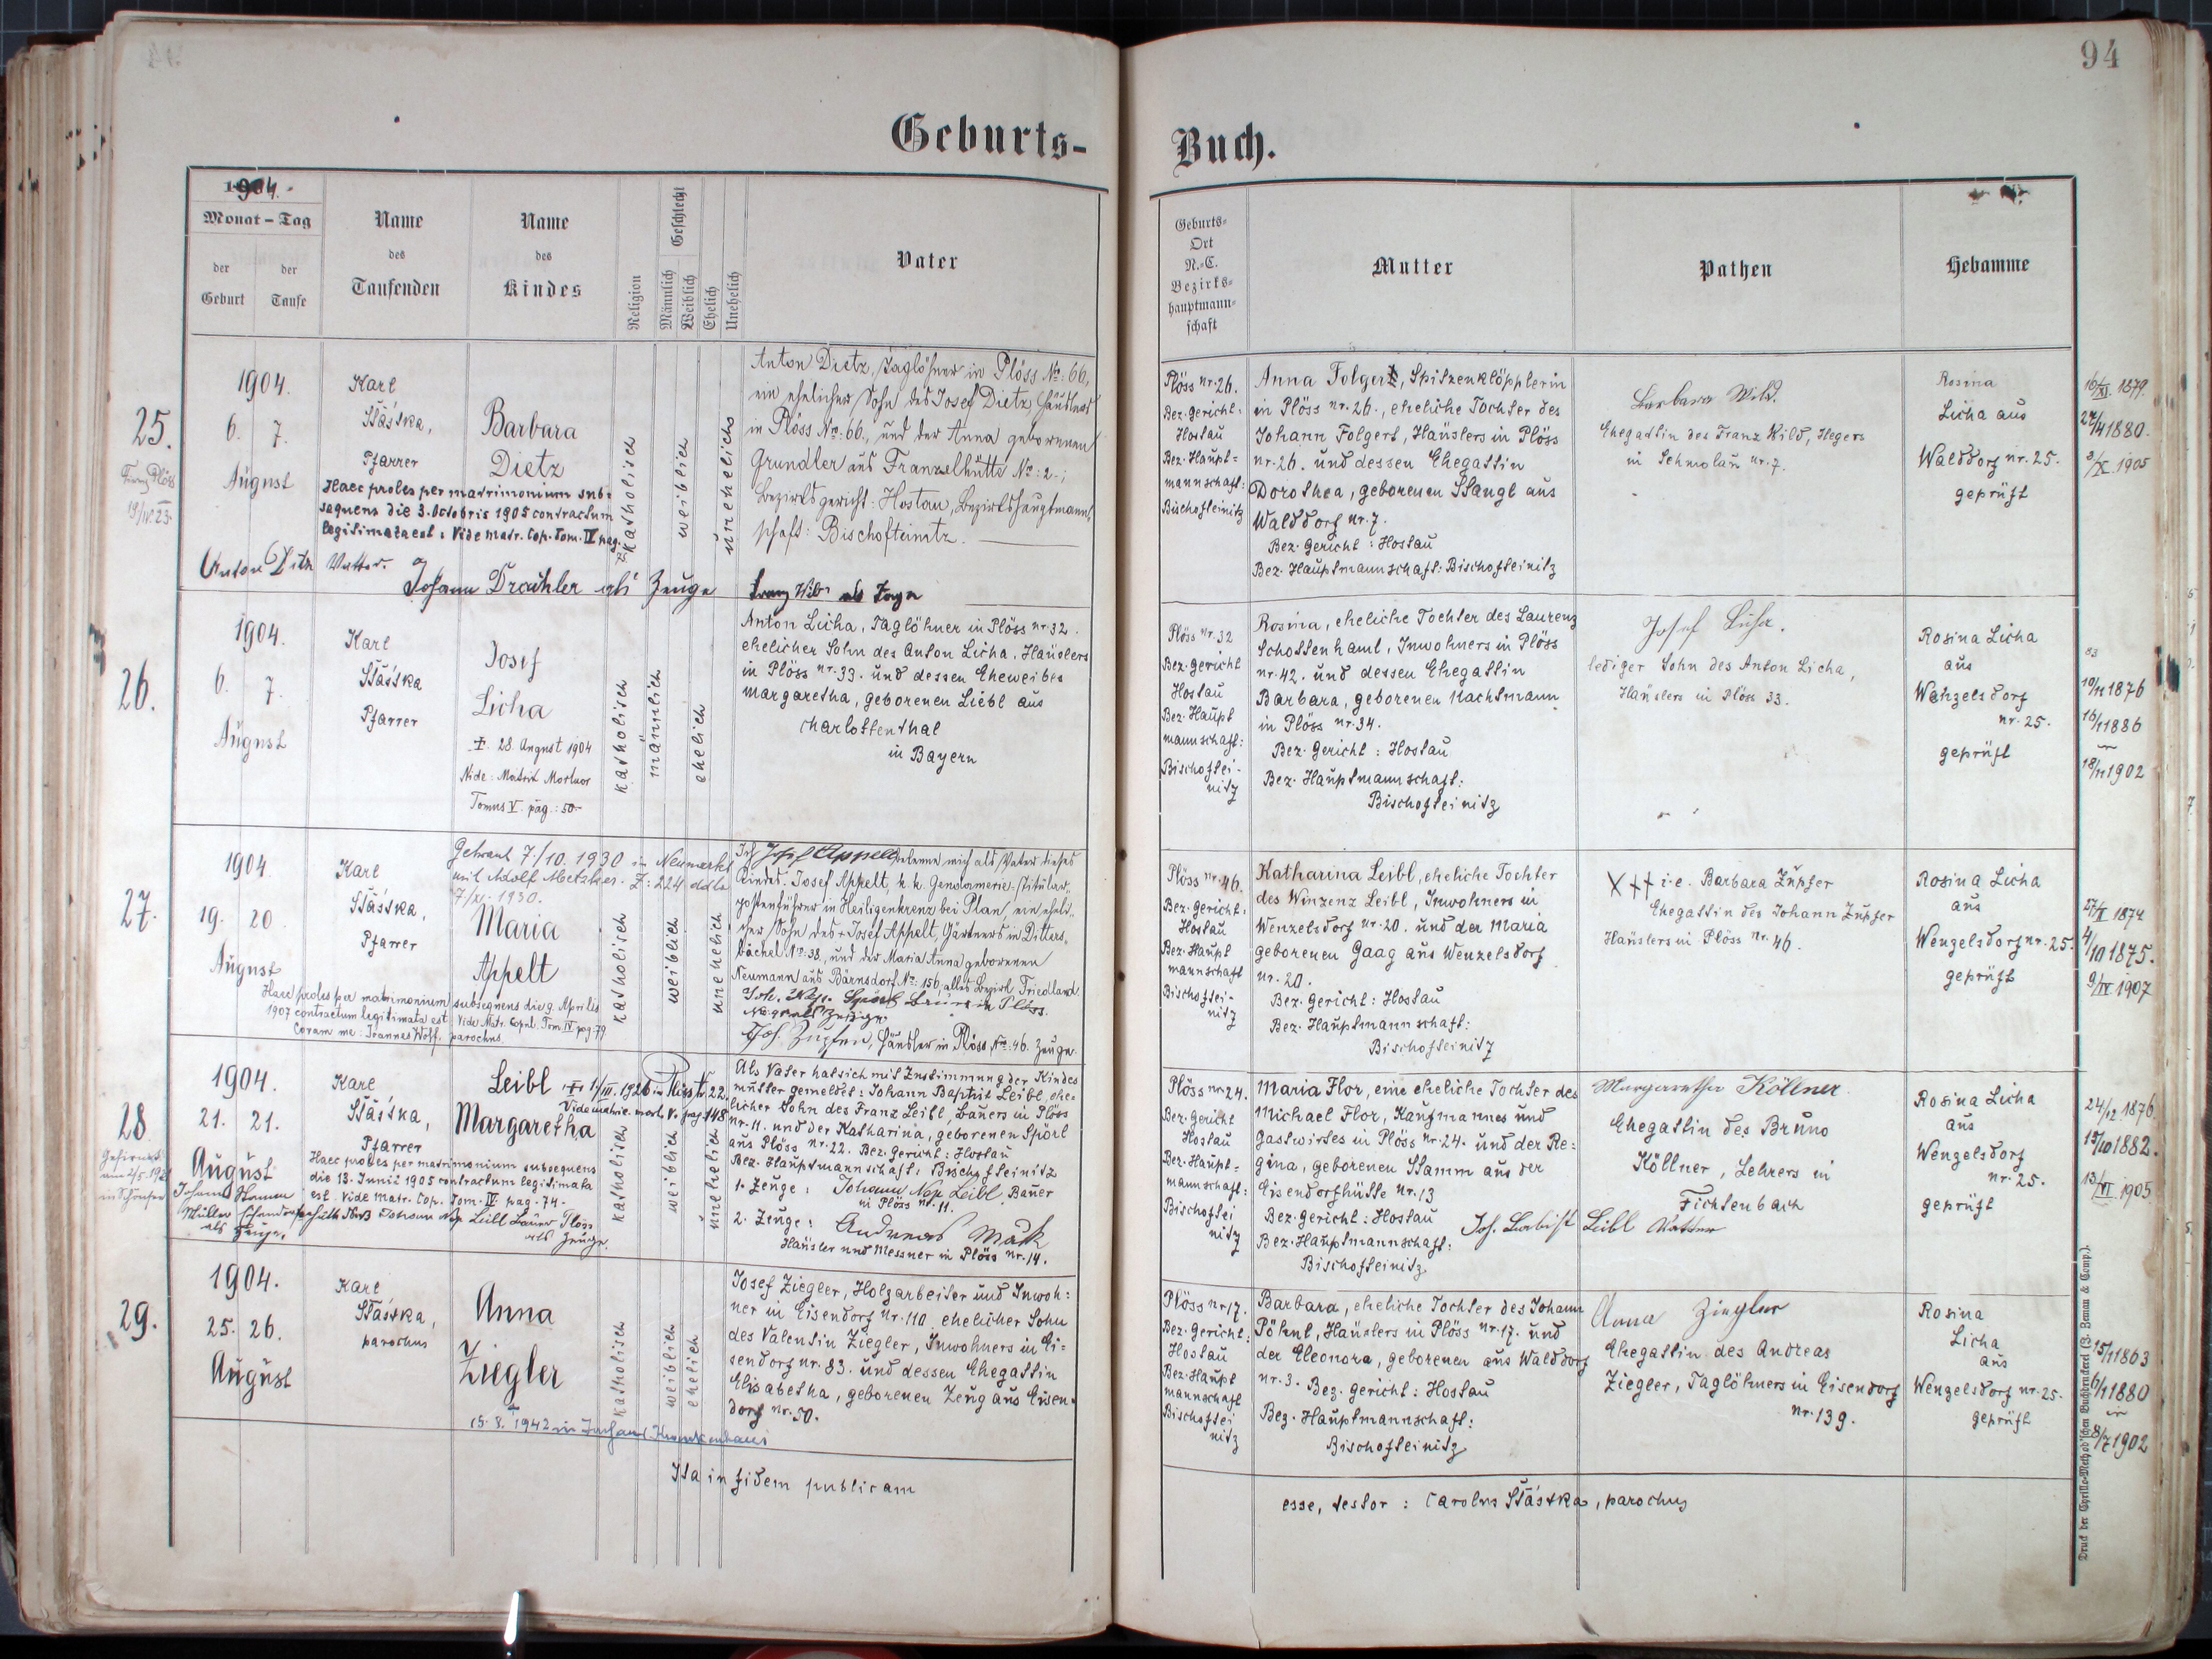 94
Geburts-
Buch.
1904.
Monat - Tag
der Geburt
der Taufe
Name
des
Taufenden
Name
des
Kindes
Religion
Geschlecht
Männlich
Weiblich
Ehelich
Unehelich
Vater
Geburts-
Ort
N.-C.
Bezirks-
hauptmann-
schaft
Mutter
Pathen
Hebamme
25.
1904.
6. 7.
August
Karl
Šťástka,
Pfarrer
Barbara
Dietz
Haec proles per matrimonium sub-
sequens die 3. Octobris 1905 contractum
legitimata est. Vide matr. Cop. Tom. IV pag.
katholisch
weiblich
unehelich
Anton Dietz, Taglöhner in Plöss No: 66,
ein ehelicher Sohn des Josef Dietz, Häuslers
in Plöss No: 66, und der Anna geborenen
Grundler aus Franzelhütte No: 2.;
Bezirksgericht: Hostau, Bezirkshauptmann-
schaft: Bischofteinitz.
Anton Dietz Vatter.
Johann Drachler als Zeuge
Franz Wild als Zeuge
Plöss nr. 26.
Bez. Gericht:
Hostau
Bez. Haupt=
mannschaft:
Bischofteinitz
Anna Folgert, Spitzenklöpplerin
in Plöss nr. 26., eheliche Tochter des
Johann Folgert, Häuslers in Plöss
nr. 26. und dessen Ehegattin
Dorothea, geborenen Stangl aus
Walddorf nr. 7.
Bez. Gericht: Hostau
Bez. Hauptmannschaft: Bischofteinitz
Barbara Wild.
Ehegattin des Franz Wild, Hegers
in Schmolau nr. 7.
Rosina
Licha aus
Walddorf nr. 25.
geprüft
16/XI. 1879.
27/4 1880.
3/X. 1905
26.
1904.
6. 7.
August
Karl
Šťástka
Pfarrer
Josef
Licha
28. August 1904
Vide: Matrik Mortuor
Tomus V. pag.: 50.
katholisch
männlich
ehelich
Anton Licha, Taglöhner in Plöss nr. 32.
ehelicher Sohn des Anton Licha, Häuslers
in Plöss nr. 33. und dessen Eheweibes
Margaretha, geborenen Liebl aus
Charlottenthal
in Bayern
Plöss nr. 32
Bez. Gericht
Hostau
Bez. Haupt
mannschaft:
Bischoftei-
nitz
Rosina, eheliche Tochter des Laurenz
Schottenhaml, Inwohners in Plöss
nr. 42. und dessen Ehegattin
Barbara, geborenen Nachtmann
in Plöss nr. 34.
Bez. Gericht: Hostau
Bez. Hauptmannschaft:
Bischofteinitz
Josef Licha.
lediger Sohn des Anton Licha,
Häuslers in Plöss 33.
Rosina Licha
aus
Wenzelsdorf
nr. 25.
geprüft
19/11 1876
16/1 1886
18/11 1902
27.
1904
19. 20
August
Karl
Šťástka,
Pfarrer
Getraut 7./10. 1930 in Neumarkt
mit Adolf Metzker. Z: 224 ddto
7/XI. 1930.
Maria
Appelt
Haec proles per matrimonium subsequens die 9. Aprilis
1907 contractum legitimata est. Vide Matr. Copul. Tom. IV pag. 79
Coram me: Joannes Wolf, parochus
katholisch
weiblich
unehelich
Ich Josef Appelt bekenne mich als Vater dieses
Kindes. Josef Appelt, k. k. Gendarmerie-Titular-
postenführer in Heiligenkreuz bei Plan, ein eheli-
cher Sohn des Josef Appelt, Gärtners in Ditters-
bächel No: 38, und der Maria Anna geborenen
Neumann aus Bärnsdorf No: 156, alles Bezirk Friedland.
Joh. Nep. Spörl Bauer in Plöss.
Joh. Zupfer, Häusler in Plöss No: 46. Zeuge.
Plöss nr. 46.
Bez. Gericht:
Hostau
Bez. Haupt
mannschaft
Bischoftei-
nitz
Katharina Leibl, eheliche Tochter
des Winzenz Leibl, Inwohners in
Wenzelsdorf nr. 20. und der Maria
geborenen Gaag aus Wenzelsdorf
nr. 20.
Bez. Gericht: Hostau
Bez. Hauptmannschaft:
Bischofteinitz
XXX i. e. Barbara Zupfer
Ehegattin des Johann Zupfer
Häuslers in Plöss nr. 46.
Rosina Licha
aus
Wenzelsdorf nr. 25.
geprüft
27/X 1874
4/10 1875.
9/IV. 1907
28
1904.
21. 21.
August
Karl
Šťástka,
Pfarrer
Leibl 1/III. 1926 in Plöss Nr. 22.
Vide matric. mort. V. pag. 148
Margaretha
Haec proles per matrimonium subsequens
die 13. Junii 1905 contractum legitimata
est. Vide Matr. Cop. Tom. IV pag. 74.
Johann Nep Leibl Bauer Plöss
als Zeuge.
als Zeuge.
katholisch
weiblich
unehelich
Als Vater hat sich mit Zustimmung der Kindes
mutter gemeldet: Johann Baptist Leibl, ehe-
licher Sohn des Franz Leibl, Bauers in Plöss
nr. 11. und der Katharina, geborenen Spörl
aus Plöss nr. 22. Bez. Gericht: Hostau
Bez. Hauptmannschaft: Bischofteinitz
1. Zeuge: Johann Nep Leibl, Bauer
in Plöss nr. 11.
2. Zeuge: Andreas Mack
Häusler und Messner in Plöss nr. 14.
Plöss nr. 24.
Bez. Gericht
Hostau
Bez. Haupt=
mannschaft:
Bischoftei
nitz
Maria Flor, eine eheliche Tochter des
Michael Flor, Kaufmannes und
Gastwirtes in Plöss nr. 24. und der Re=
gina, geborenen Stamm aus der
Eisendorfhütte nr. 13
Bez. Gericht: Hostau
Bez. Hauptmannschaft:
Bischofteinitz
Joh. Babist Leibl Vatter
Margaretha Köllner
Ehegattin des Bruno
Köllner, Lehrers in
Fichtenbach
Rosina Licha
aus
Wenzelsdorf
nr. 25.
geprüft
24/12 1876.
15/10 1882.
13/VI. 1905
29.
1904.
25. 26.
August
Karl
Šťástka,
parochus
Anna
Ziegler
katholisch
weiblich
ehelich
Josef Ziegler, Holzarbeiter und Inwoh=
ner in Eisendorf nr. 110. ehelicher Sohn
des Valentin Ziegler, Inwohners in Ei=
sendorf nr. 83. und dessen Ehegattin
Elisabetha, geborenen Zeug aus Eisen-
dorf nr. 50.
Plöss nr 17.
Bez. Gericht:
Hostau
Bez. Haupt
mannschaft
Bischoftei
nitz
Barbara, eheliche Tochter des Johann
Pöhnl, Häuslers in Plöss nr. 17. und
der Eleonora, geborenen aus Walddorf
nr. 3. Bez. Gericht: Hostau
Bez. Hauptmannschaft:
Bischofteinitz
Anna Ziegler
Ehegattin des Andreas
Ziegler, Taglöhners in Eisendorf
nr. 139.
Rosina
Licha
aus
Wenzelsdorf nr. 25.
geprüft
15/11 1863
6/1 1880
8/7 1902
Ita in fidem publicam
esse, testor: Carolus Šťástka, parochus
Druck der Cyrillo-Method'schen Buchdruckerei (J. Zeman & Comp.).